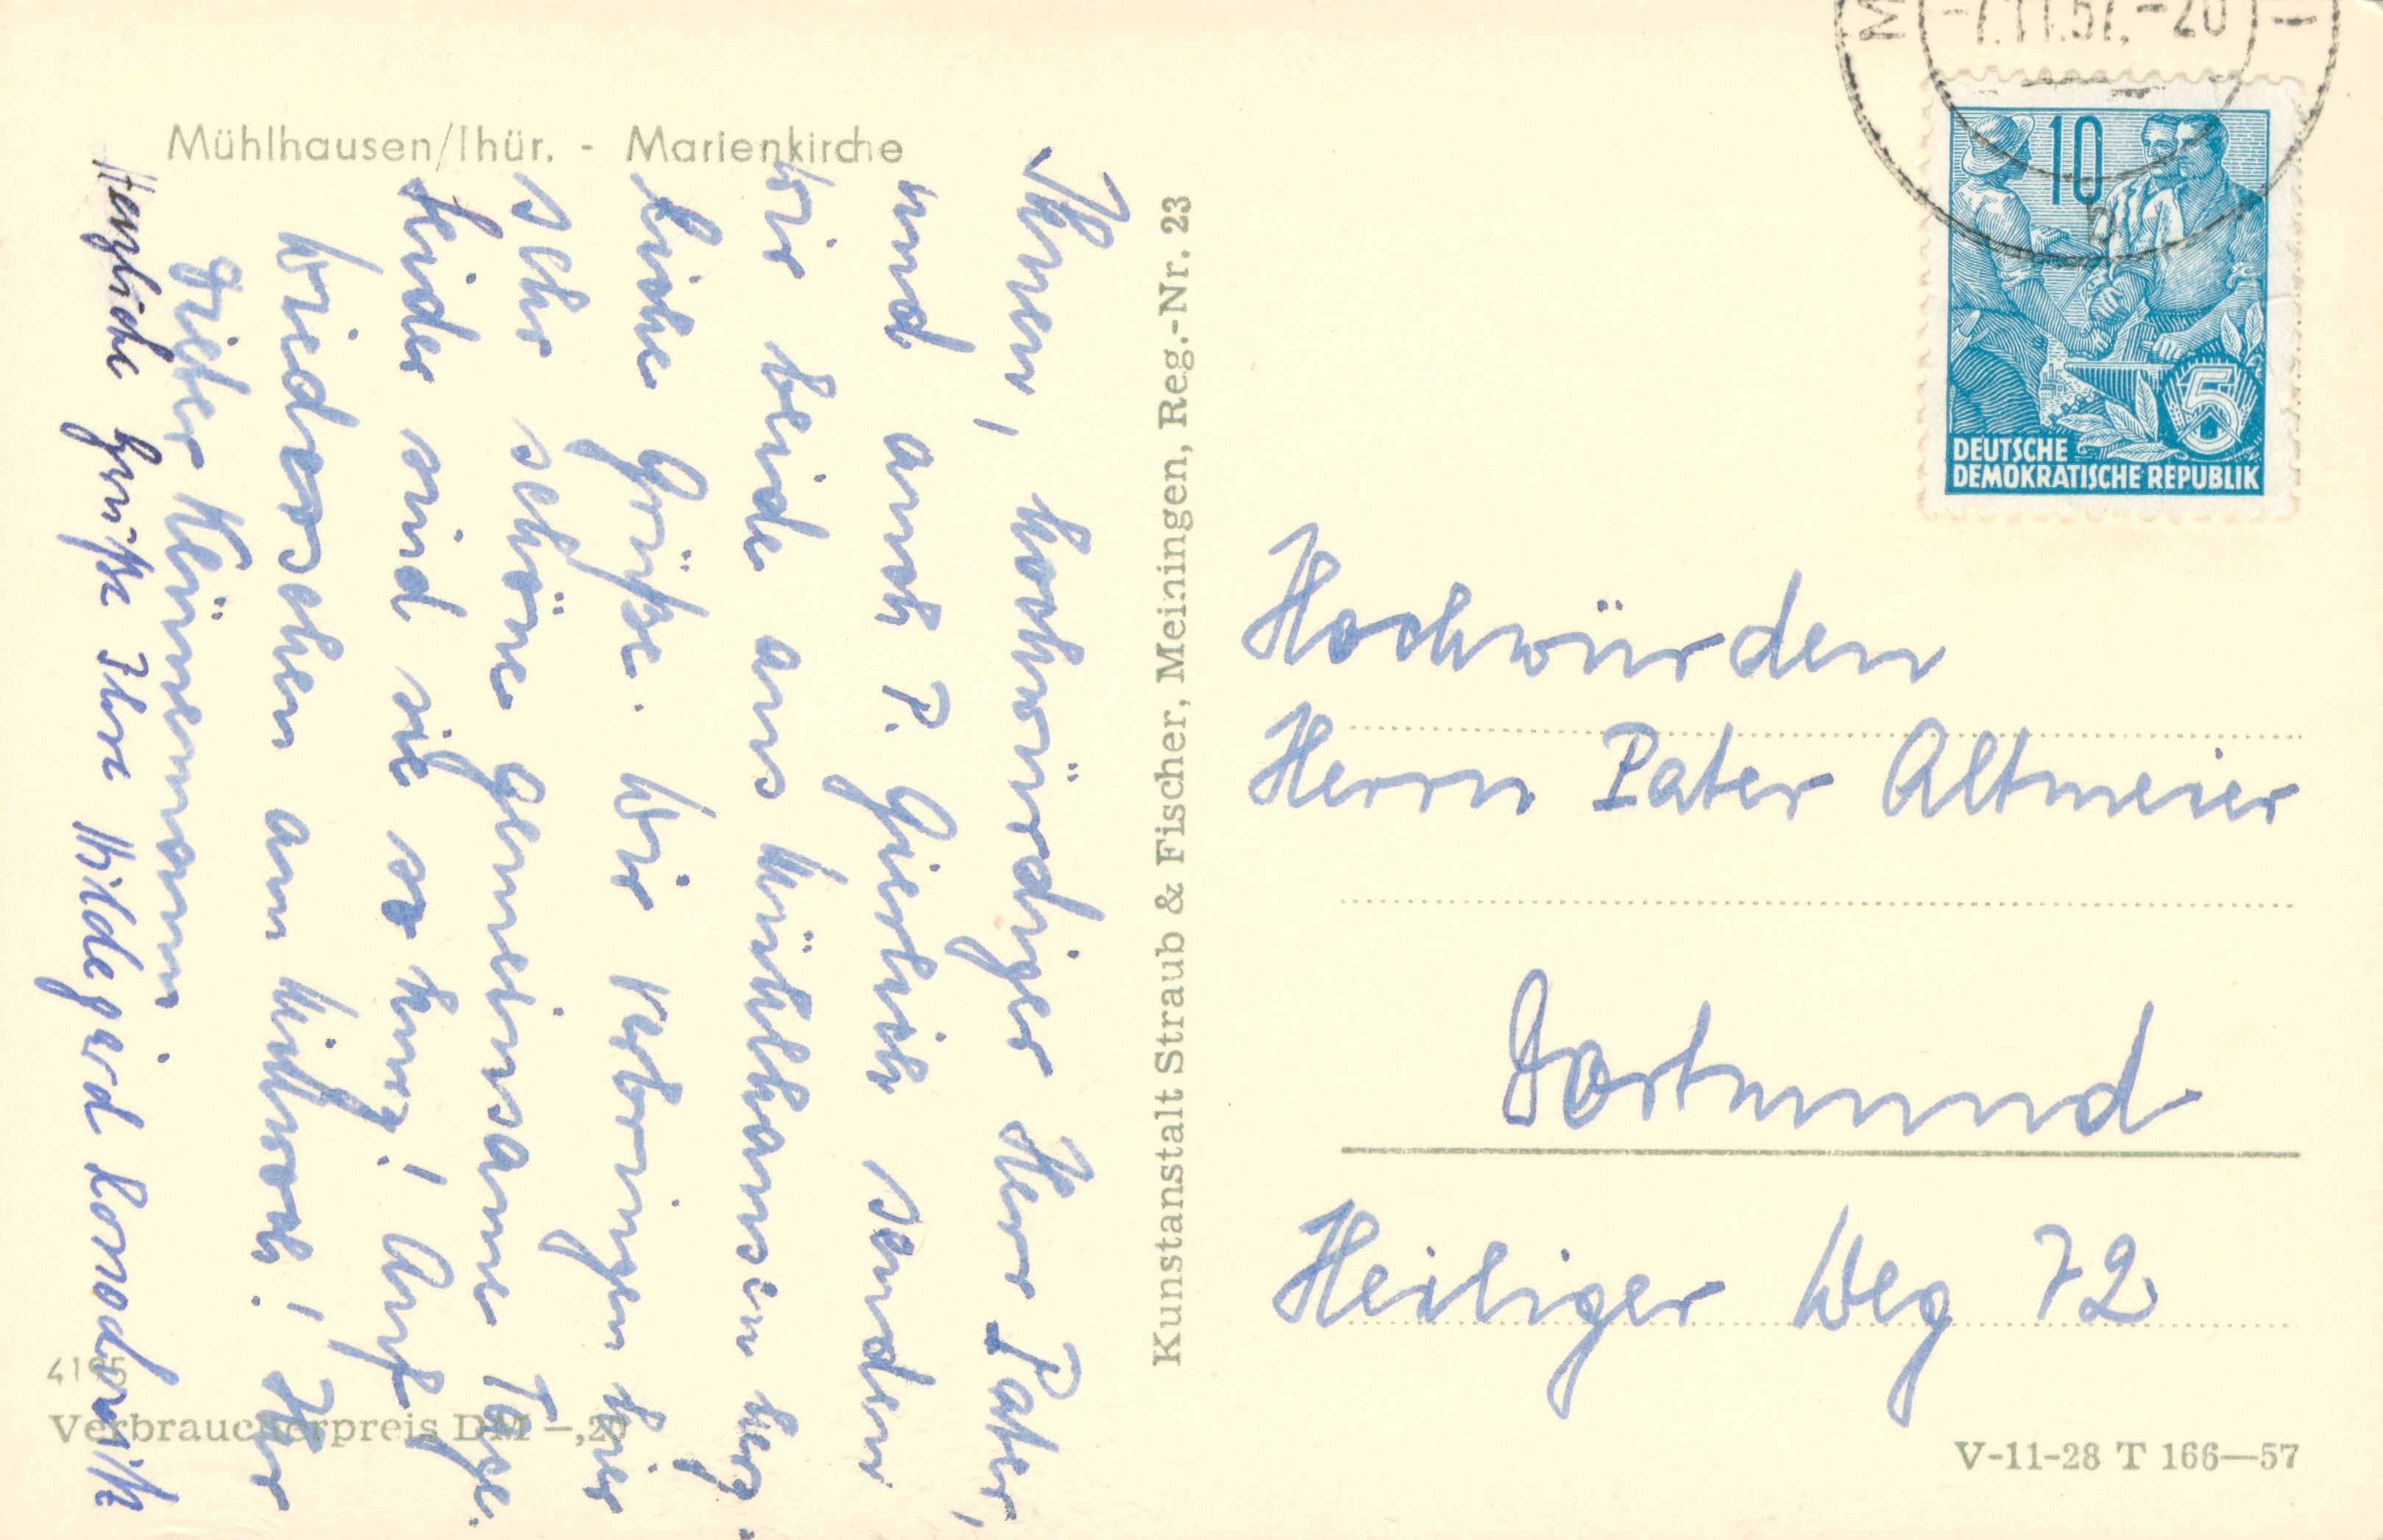 Mühlhausen/Thür. - Marienkirche
Ihnen, hochwürdiger Herr Pater,
und auch P. senden
wir beide aus Mühlhausen herz-
liche Grüße. Wir verbringen hier
sehr schöne gemeinsame Tage.
Leider sind sie so kurz! Auf
Wiedersehen am Mittwoch! Ihr
Dieter Klinnemann
Herzliche Grüße Ihre Hildegard
4195
Verbraucherpreis DM -,20
Kunstanstalt Straub & Fischer, Meiningen, Reg.-Nr. 23
M -7.11.57.-20
b
10
5
DEUTSCHE
DEMOKRATISCHE REPUBLIK
Hochwürden
Herrn Pater Altmeier
Dortmund
Heiliger Weg 72
V-11-28 T 166—57